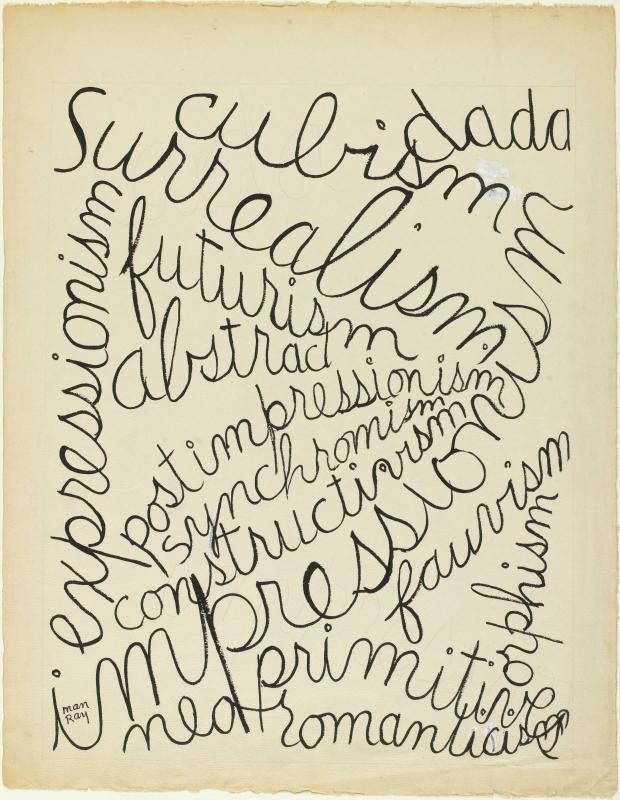 cubism
dada
Surrealism
expressionism
futurism
abstract
postimpressionism
synchromism
constructivism
impressionism
fauvism
orphism
primitivism
neoromanticism
man
Ray